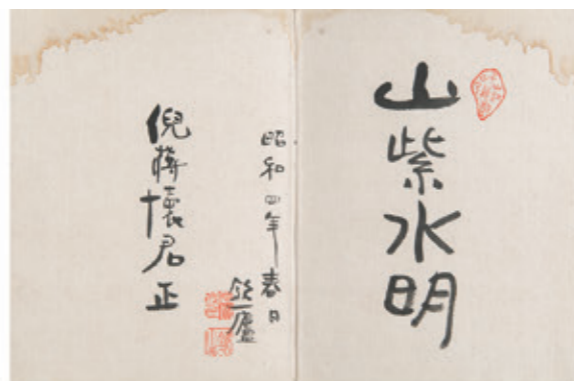 山紫水明
昭和四年春日
欽一廬
倪蔣懷君正